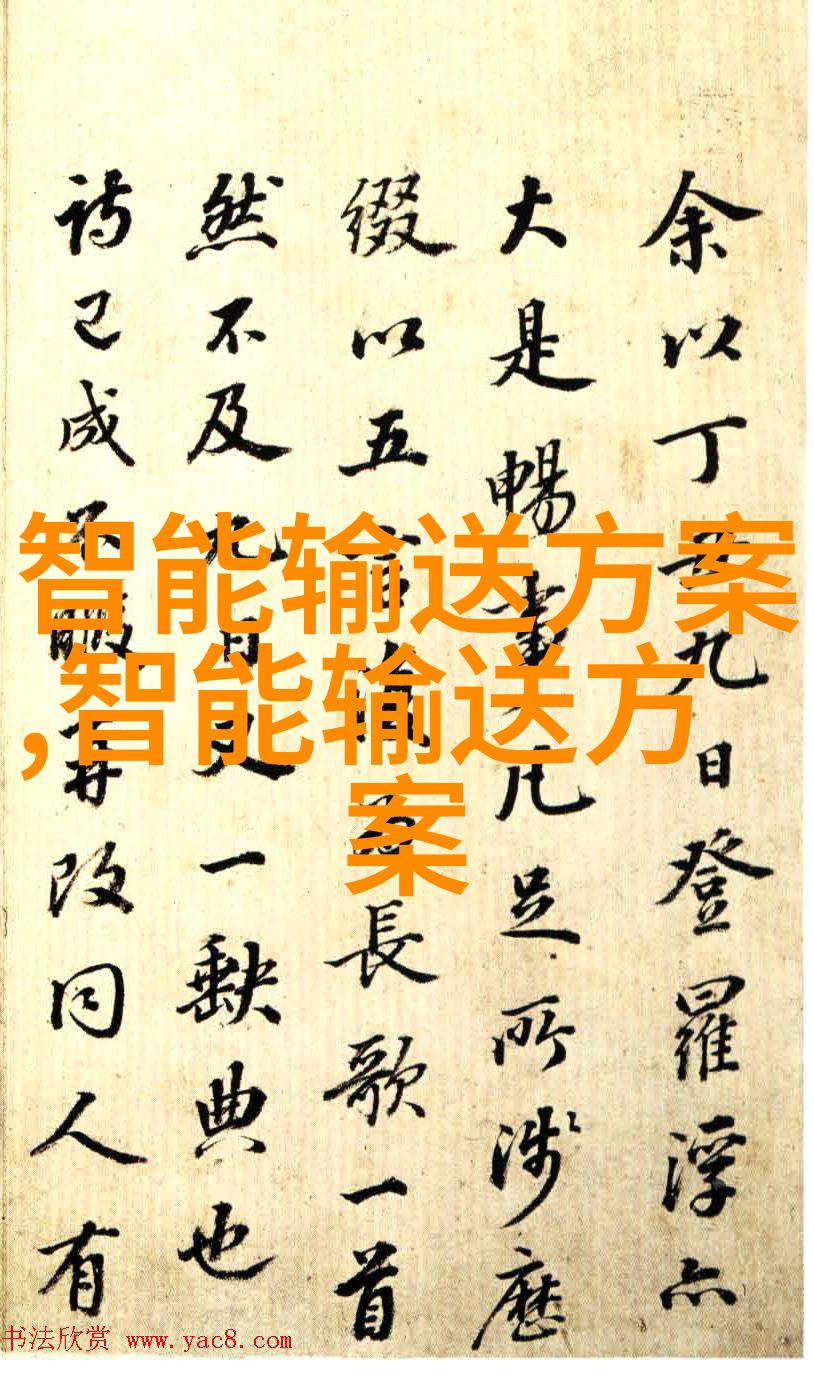 余以丁丑九日登羅浮亦
大是暢事凡足所涉歷
綴以五言長歌一首
然不及九日又一缺典也
詩已成不暇再改同人有
智能输送方案
,智能输送方
案
书法欣赏 www.yac8.com